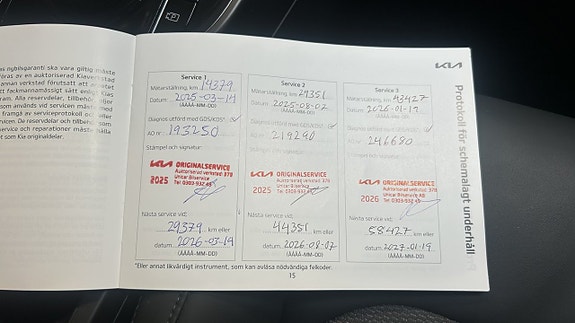 nybilsgaranti ska vara giltig måste
föras av en auktoriserad Kiaverkstad
annan verkstad förutsatt att arbetet
service och reparationer måste hålla
et som Kia originaldelar.
KIA
Protokoll för schemalagt underhåll
Service 1
Mätarställning, km 14379
Datum: 2025-03-14
(ÅÅÅÅ-MM-DD)
Diagnos utförd med GDS/KDS*
AO nr: 193250
Stämpel och signatur:
KIA ORIGINALSERVICE
Auktoriserad verkstad 378
Unicar Bilservice
2025 Tel 0303-932 45
Nästa service vid:
29379 km eller
datum 2026-03-14
(ÅÅÅÅ-MM-DD)
Service 2
Mätarställning, km 29351
Datum: 2025-08-02
(ÅÅÅÅ-MM-DD)
Diagnos utförd med GDS/KDS*
AO nr: 219290
Stämpel och signatur:
KIA ORIGINALSERVICE
Auktoriserad verkstad 378
Unicar Bilservice AB
2025 Tel 0303-932 45
Nästa service vid:
44351 km eller
datum 2026-08-02
(ÅÅÅÅ-MM-DD)
Service 3
Mätarställning, km 43427
Datum: 2026-01-19
(ÅÅÅÅ-MM-DD)
Diagnos utförd med GDS/KDS*
AO nr: 246680
Stämpel och signatur:
KIA ORIGINALSERVICE
Auktoriserad verkstad 378
Unicar Bilservice AB
2026 Tel 0303-932 45
Nästa service vid:
58427 km eller
datum 2027-01-19
(ÅÅÅÅ-MM-DD)
*Eller annat likvärdigt instrument, som kan avläsa nödvändiga felkoder.
15